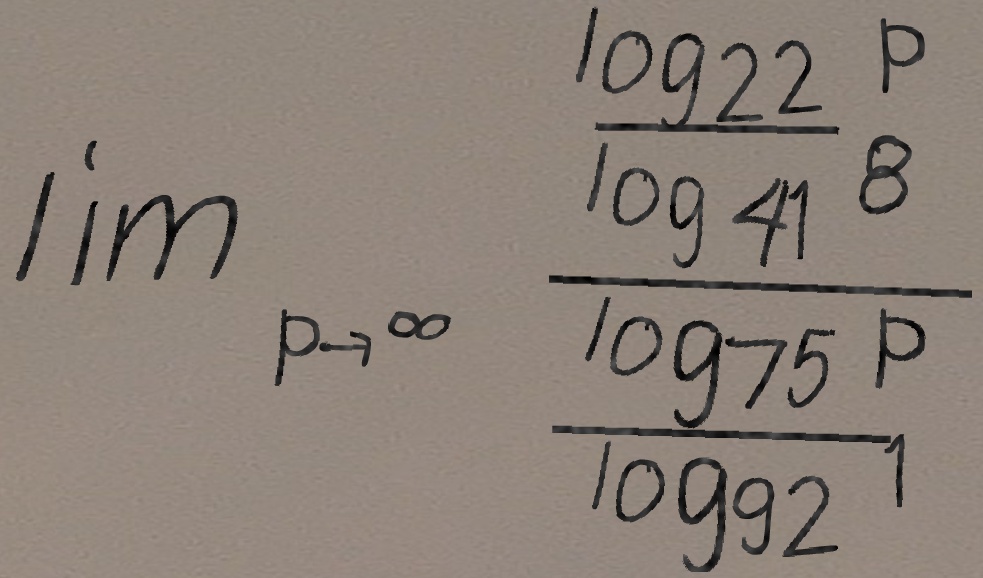 lim p→∞ \frac{\frac{log_{22} p}{log_{41} 8}}{\frac{log_{75} p}{log_{92} 1}}